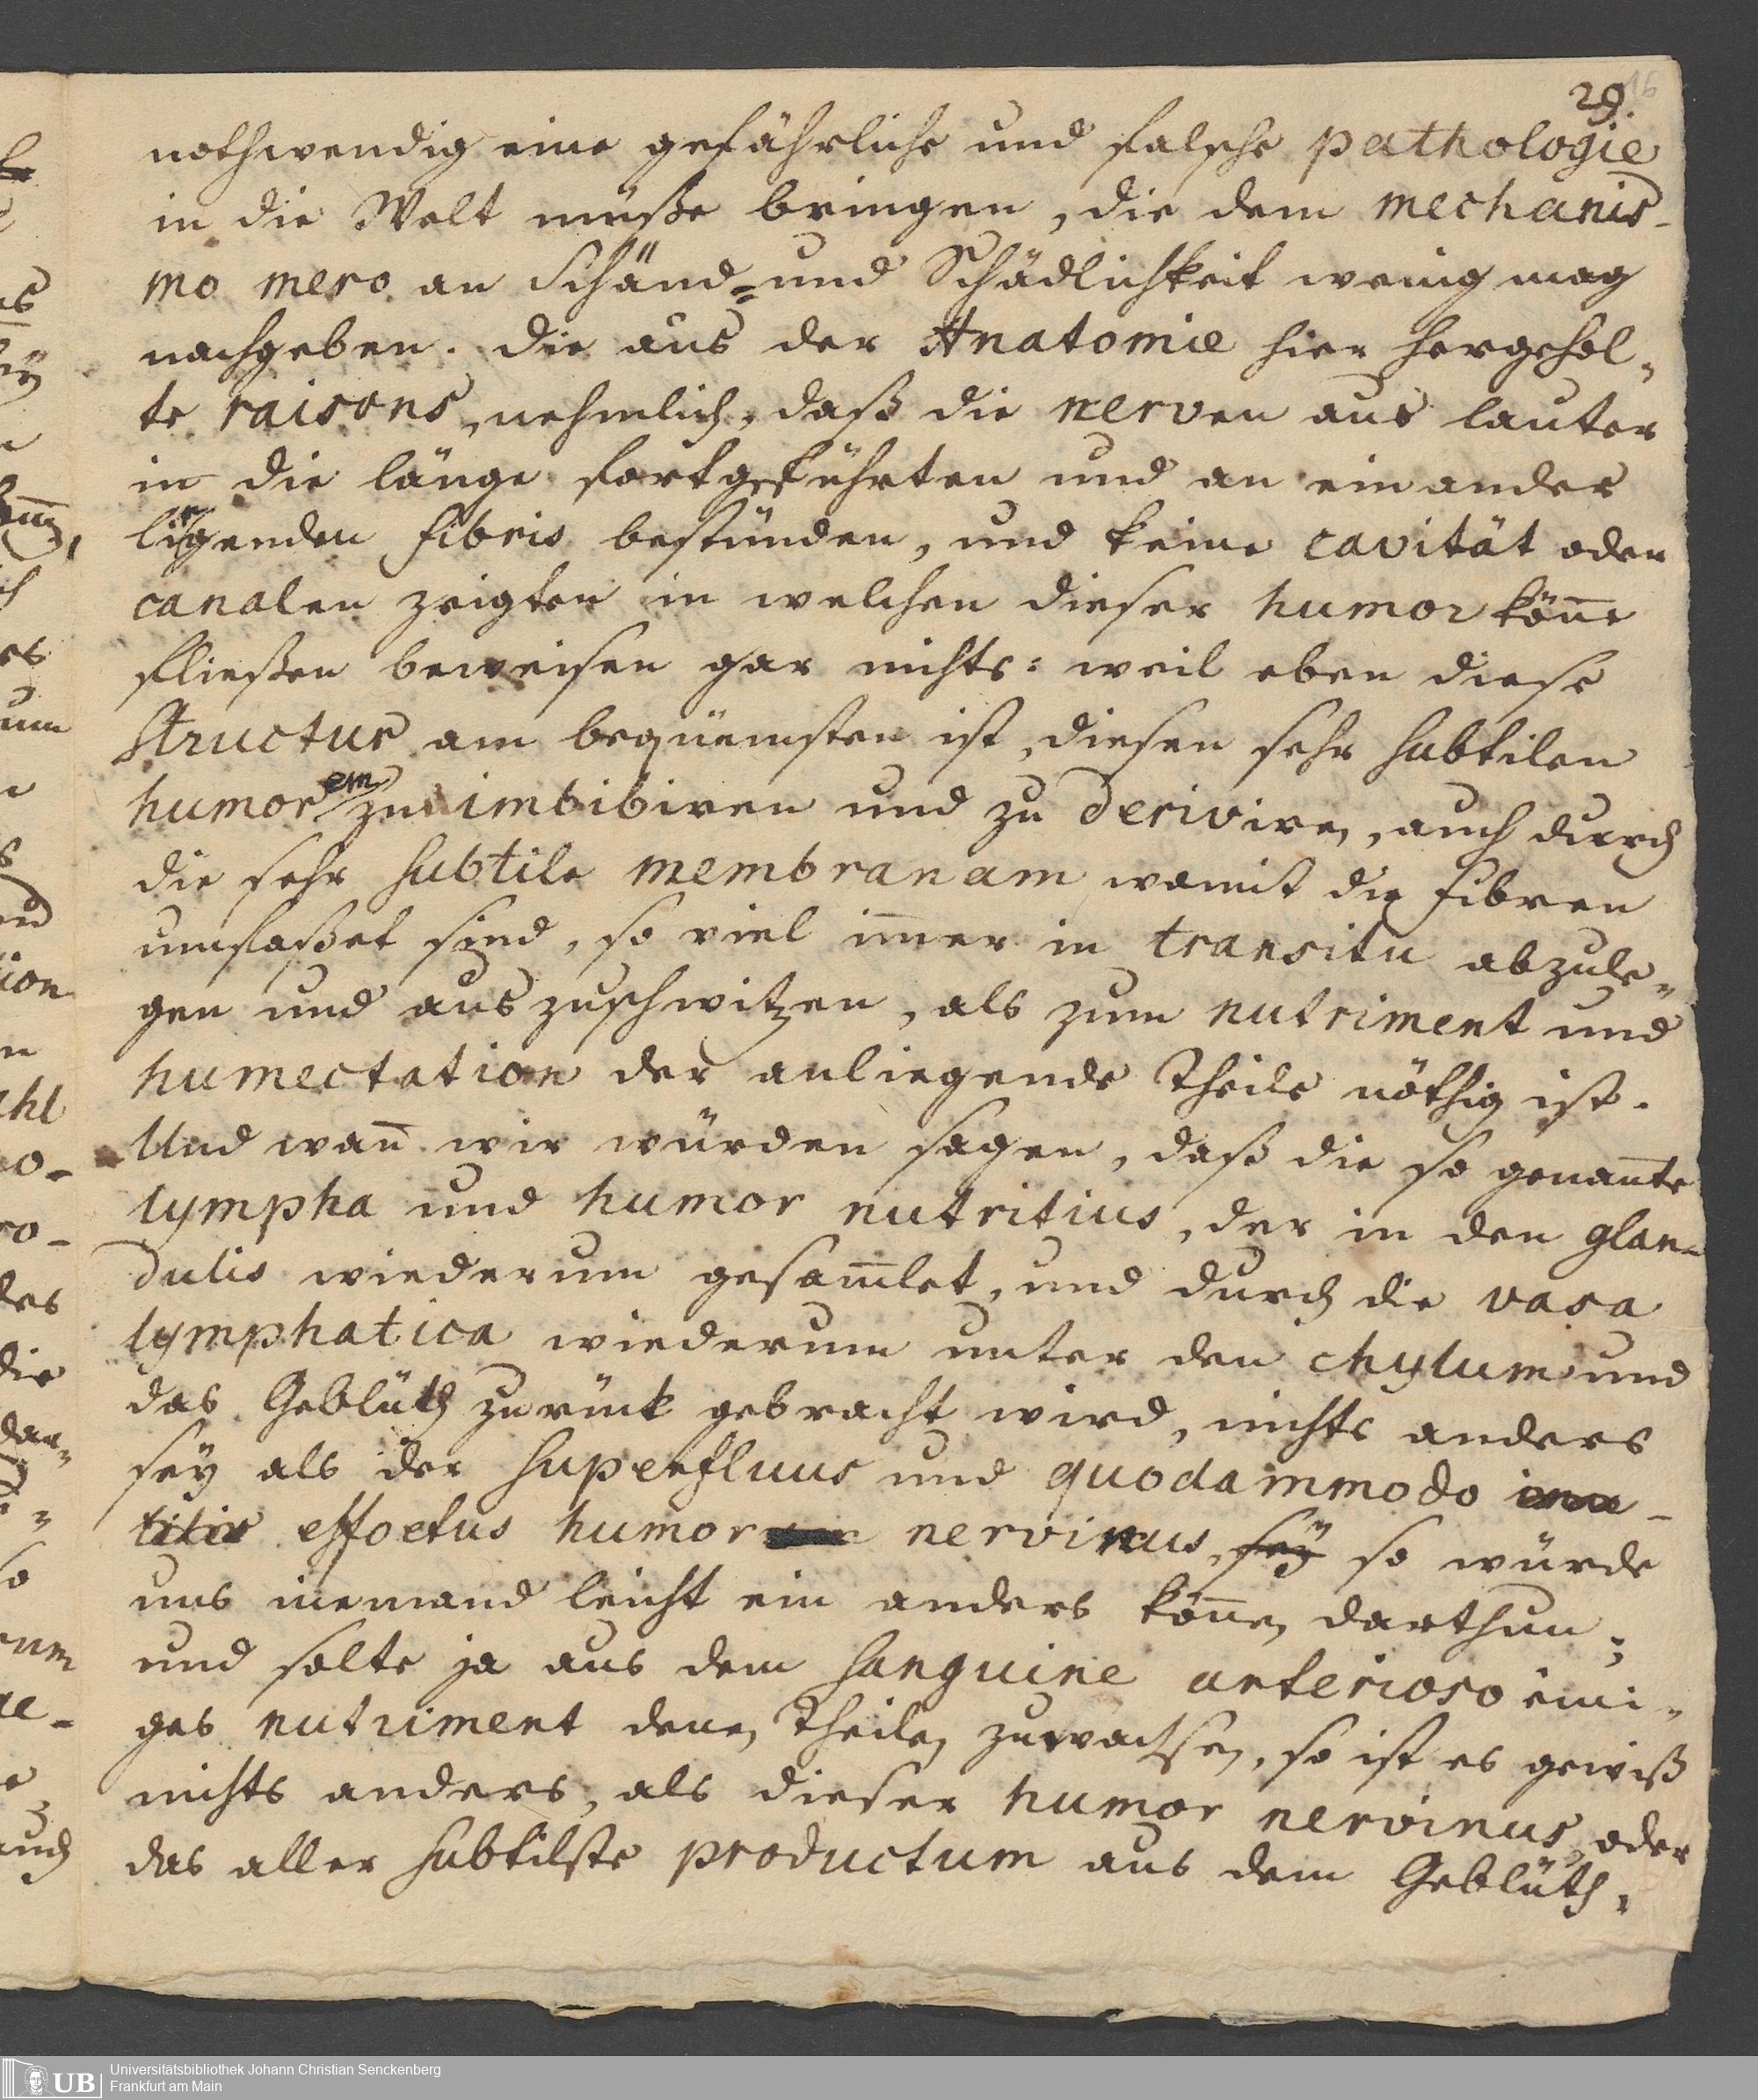 29.
nothwendig eine gefährliche und falsche pathologie
in die Welt müße bringen, die dem mechanis-
mo mero an Schänd- und Schädlichkeit wenig mag
nachgeben. die aus der Anatomie hier hergehol-
te raisons, nehmlich, daß die nerven aus lauter
in die länge fortgeführten und an einander
liegenden fibris bestünden, und keine cavität oder
canalen zeigten in welchen dieser humor kön̄e
fließen beweisen gar nichts: weil eben diese
structur am beqüemsten ist, diesen sehr subtilen
humorem zu imbibiren und zu deriviren, auch durch
die sehr subtile membranam womit die fibren
umfaßet sind, so viel im̄er in transitu abzule-
gen und auszuschwitzen, als zum nutriment und
humectation der anliegende Theile nöthig ist.
Und wan̄ wir würden sagen, daß die so genan̄te
lympha und humor nutritius, der in den glan-
dulis wiederum gesam̄let, und durch die vasa
lymphatica wiederum unter den chylum und
das Geblüth zurück gebracht wird, nichts anders
sey als der superfluus und quodammodo inu-
tilis effoetus humor nervinus, sey so würde
uns niemand leicht ein anders kön̄en darthun;
und solte ja aus dem sanguine arterioso eini-
ges nutriment denen Theilen zuwachsen, so ist es gewiß
nichts anders, als dieser humor nervinus, oder
das aller subtilste productum aus dem Geblüth,
UB
Universitätsbibliothek Johann Christian Senckenberg
Frankfurt am Main